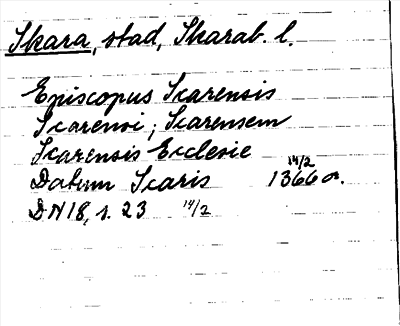 Skara, stad, Skarab. l.
Episcopus Scarensis
Scarensi; Scarensem
Scarensis Ecclesie
Datum Scaris 14/2 1366 or.
DN 18, s. 23 14/2